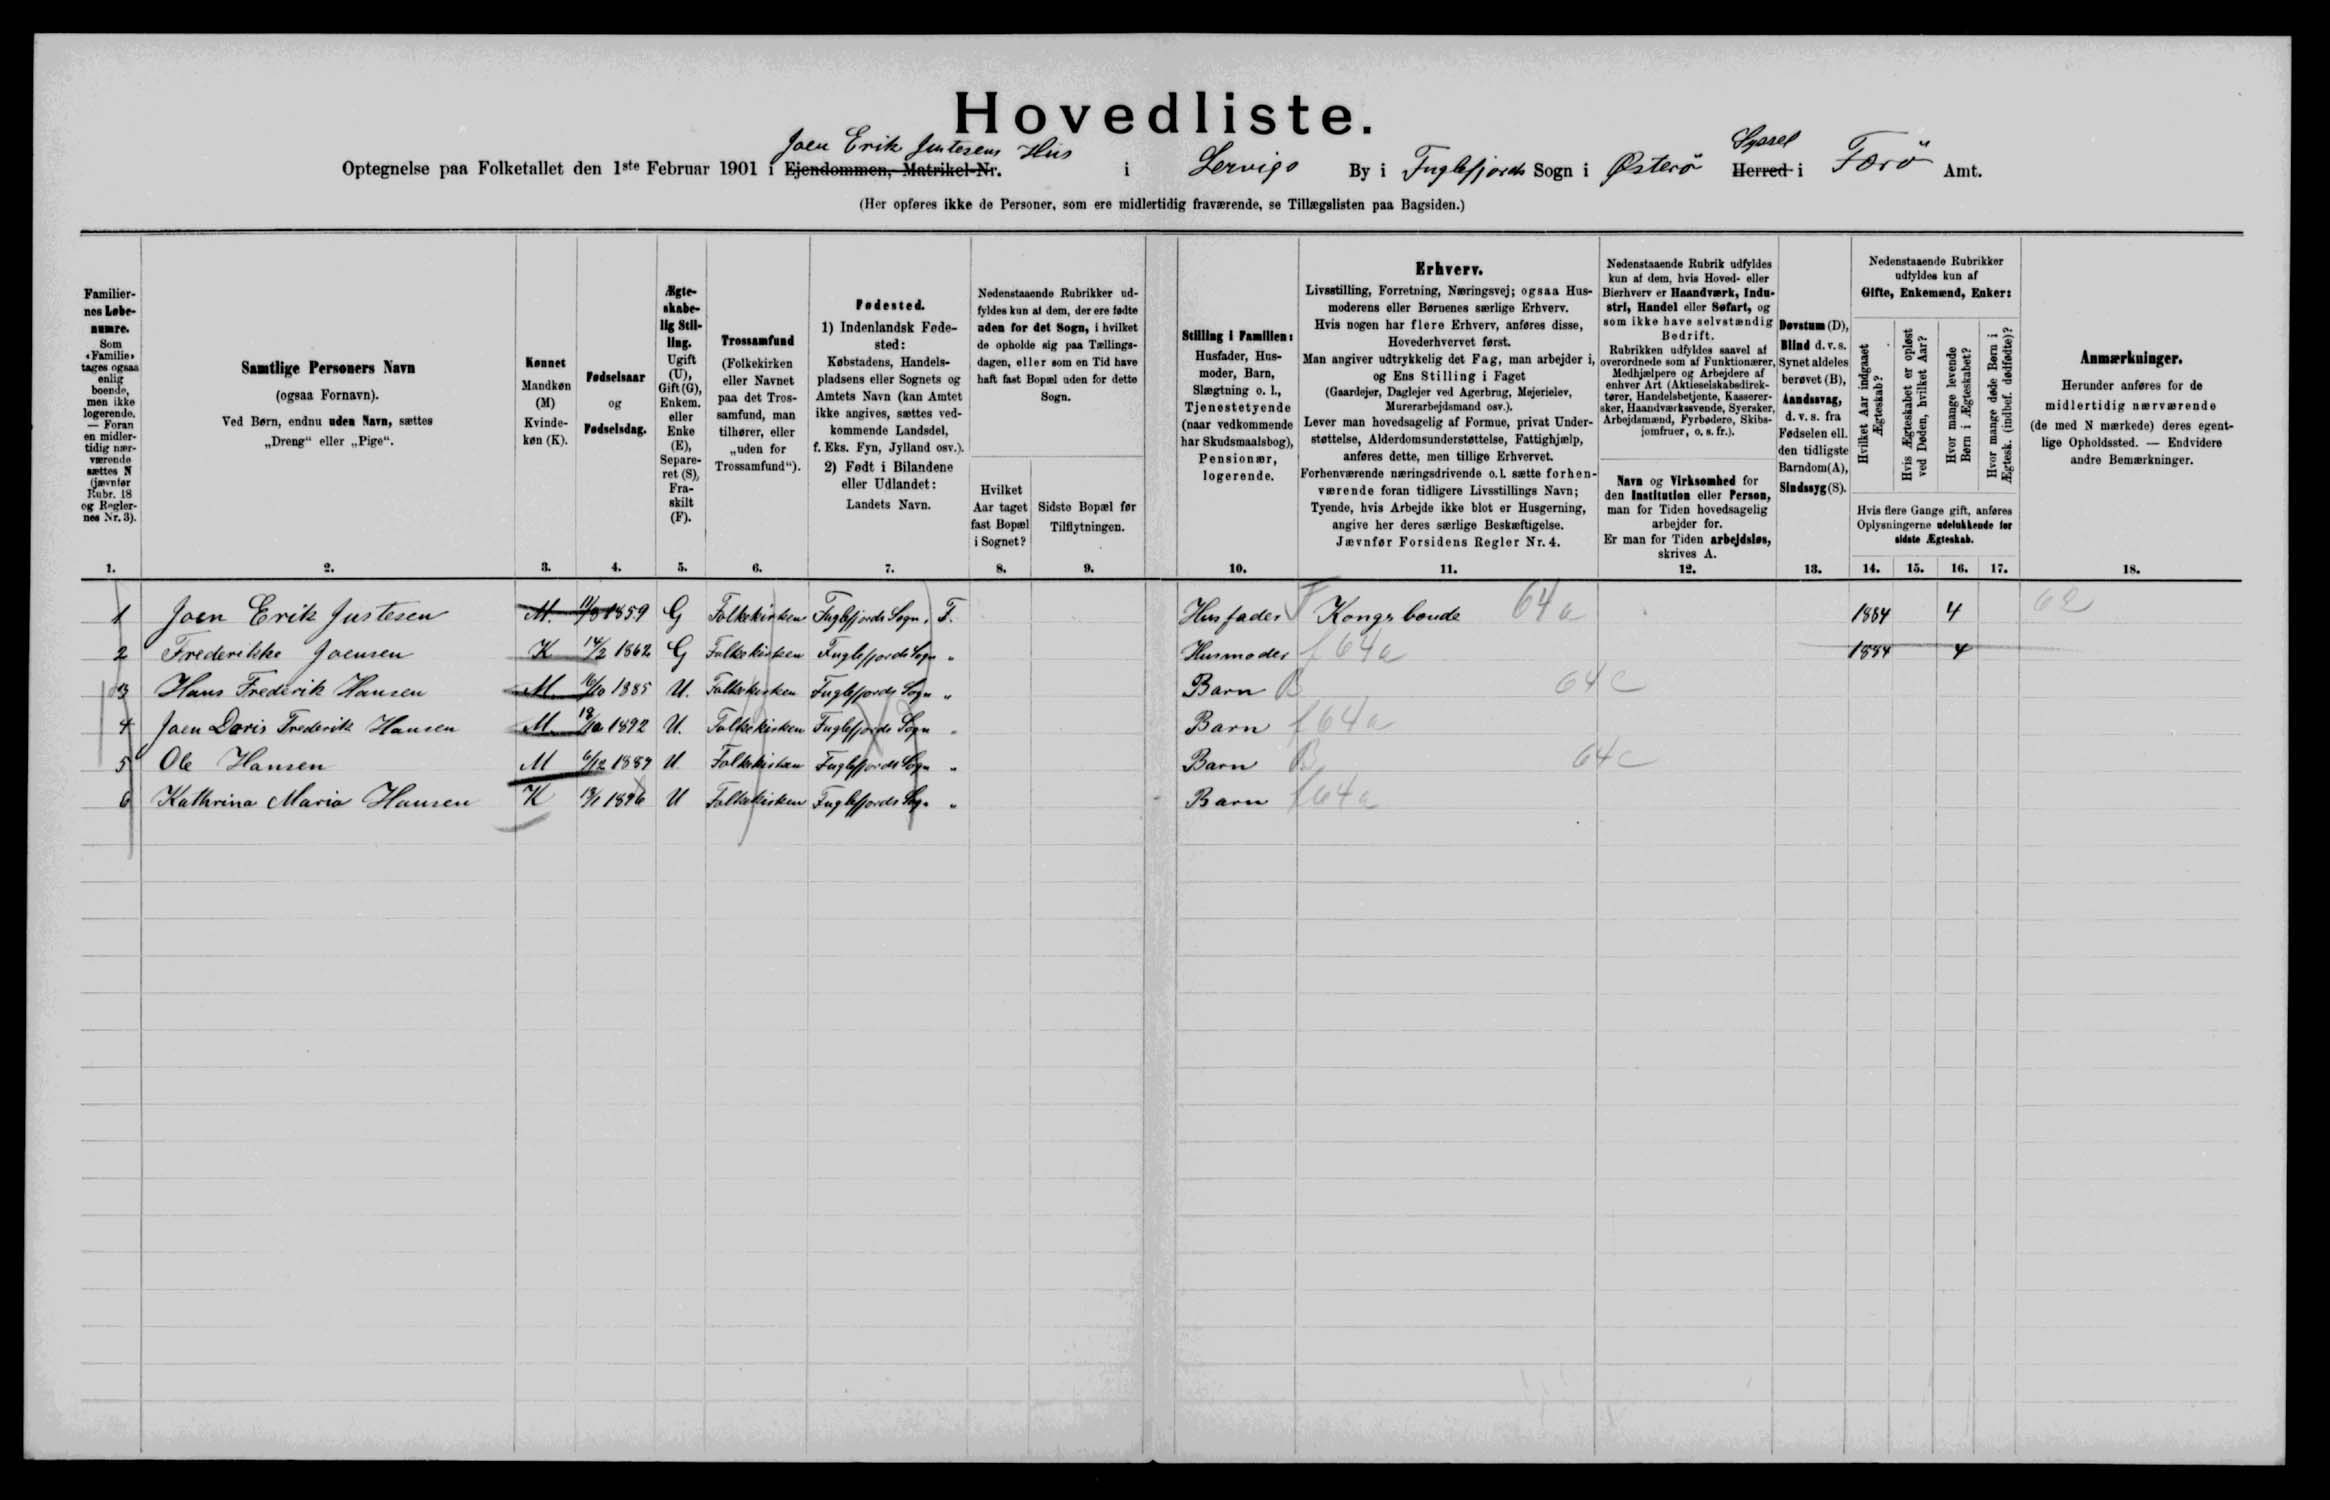 Hovedliste.
Joen Erik Justesens Hus Syssel
Optegnelse paa Folketallet den 1ste Februar 1901 i Ejendommen, Matrikel-Nr. i Lervigo By i Fuglefjords Sogn i Østerø Herred i Færø Amt.
(Her opføres ikke de Personer, som ere midlertidig fraværende, se Tillægslisten paa Bagsiden.)
Familier-
nes Løbe-
numre.
Som
«Familie»
tages ogsaa
enlig
boende,
men ikke
logerende.
— Foran
en midler-
tidig nær-
værende
sættes N
(jævnfør
Rubr. 18
og Regler-
nes Nr. 3).
1.
Samtlige Personers Navn
(ogsaa Fornavn).
Ved Børn, endnu uden Navn, sættes
„Dreng“ eller „Pige“.
2.
Kønnet
Mandkøn
(M)
Kvinde-
køn (K).
3.
Fødselsaar
og
Fødselsdag.
4.
Ægte-
skabe-
lig Stil-
ling.
Ugift
(U),
Gift (G),
Enkem.
eller
Enke
(E),
Separe-
ret (S),
Fra-
skilt
(F).
5.
Trossamfund
(Folkekirken
eller Navnet
paa det Tros-
samfund, man
tilhører, eller
„uden for
Trossamfund“).
6.
Fødested.
1) Indenlandsk Føde-
sted:
Købstadens, Handels-
pladsens eller Sognets og
Amtets Navn (kan Amtet
ikke angives, sættes ved-
kommende Landsdel,
f. Eks. Fyn, Jylland osv.).
2) Født i Bilandene
eller Udlandet:
Landets Navn.
7.
Nedenstaaende Rubrikker ud-
fyldes kun af dem, der ere fødte
uden for det Sogn, i hvilket
de opholde sig paa Tællings-
dagen, eller som en Tid have
haft fast Bopæl uden for dette
Sogn.
Hvilket
Aar taget
fast Bopæl
i Sognet?
8.
Sidste Bopæl før
Tilflytningen.
9.
Stilling i Familien:
Husfader, Hus-
moder, Barn,
Slægtning o. l.,
Tjenestetyende
(naar vedkommende
har Skudsmaalsbog),
Pensionær,
logerende.
10.
Erhverv.
Livsstilling, Forretning, Næringsvej; ogsaa Hus-
moderens eller Børnenes særlige Erhverv.
Hvis nogen har flere Erhverv, anføres disse,
Hovederhvervet først.
Man angiver udtrykkelig det Fag, man arbejder i,
og Ens Stilling i Faget
(Gaardejer, Daglejer ved Agerbrug, Mejerielev,
Murerarbejdsmand osv.).
Lever man hovedsagelig af Formue, privat Under-
støttelse, Alderdomsunderstøttelse, Fattighjælp,
anføres dette, men tillige Erhvervet.
Forhenværende næringsdrivende o. l. sætte forhen-
værende foran tidligere Livsstillings Navn;
Tyende, hvis Arbejde ikke blot er Husgerning,
angive her deres særlige Beskæftigelse.
Jævnfør Forsidens Regler Nr. 4.
11.
Nedenstaaende Rubrik udfyldes
kun af dem, hvis Hoved- eller
Bierhverv er Haandværk, Indu-
stri, Handel eller Søfart, og
som ikke have selvstændig
Bedrift.
Rubrikken udfyldes saavel af
overordnede som af Funktionærer,
Medhjælpere og Arbejdere af
enhver Art (Aktieselskabsdirek-
tører, Handelsbetjente, Kasserer-
sker, Haandværkssvende, Syersker,
Arbejdsmænd, Fyrbødere, Skibs-
jomfruer, o. s. fr.).
Navn og Virksomhed for
den Institution eller Person,
man for Tiden hovedsagelig
arbejder for.
Er man for Tiden arbejdsløs,
skrives A.
12.
Døvstum (D),
Blind d. v. s.
Synet aldeles
berøvet (B),
Aandssvag,
d. v. s. fra
Fødselen ell.
den tidligste
Barndom (A),
Sindssyg (S).
13.
Nedenstaaende Rubrikker
udfyldes kun af
Gifte, Enkemænd, Enker:
Hvilket Aar indgaaet
Ægteskab?
Hvis Ægteskabet er opløst
ved Døden, hvilket Aar?
Hvor mange levende
Børn i Ægteskabet?
Hvor mange døde Børn i
Ægtesk. (indbef. dødfødte)?
Hvis flere Gange gift, anføres
Oplysningerne udelukkende for
sidste Ægteskab.
14. 15. 16. 17.
Anmærkninger.
Herunder anføres for de
midlertidig nærværende
(de med N mærkede) deres egent-
lige Opholdssted. — Endvidere
andre Bemærkninger.
18.
1 Joen Erik Justesen M. 1859 G Folkekirken Fuglefjords Sogn, F. Husfader F Kongsbonde 64a 1884 4
2 Frederikke Joensen K 14/2 1862 G Folkekirken Fuglefjords Sogn " Husmoder f 64a 1884 4
3 Hans Frederik Hansen M 1885 U. Folkekirken Fuglefjords Sogn " Barn B 64c
4 Joen Doris Frederik Hansen M. 1892 U. Folkekirken Fuglefjords Sogn " Barn f 64a
5 Ole Hansen M 6/12 1889 U Folkekirken Fuglefjords Sogn " Barn B 64c
6 Kathrina Maria Hansen K 1896 U Folkekirken Fuglefjords Sogn " Barn f 64a